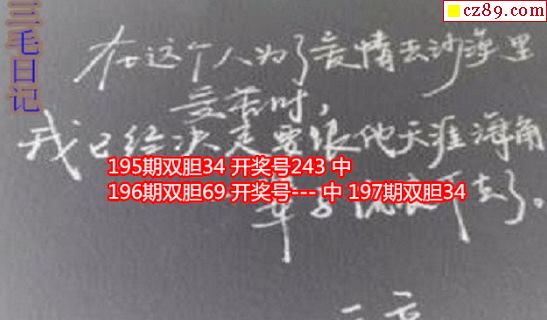 cz89.com
三毛日记
在这个人为了爱情去沙漠里
受苦时,
我已经决定要跟他天涯海角
195期双胆34 开奖号243 中
196期双胆69 开奖号--- 中 197期双胆34
一辈子流浪下去了。
三毛